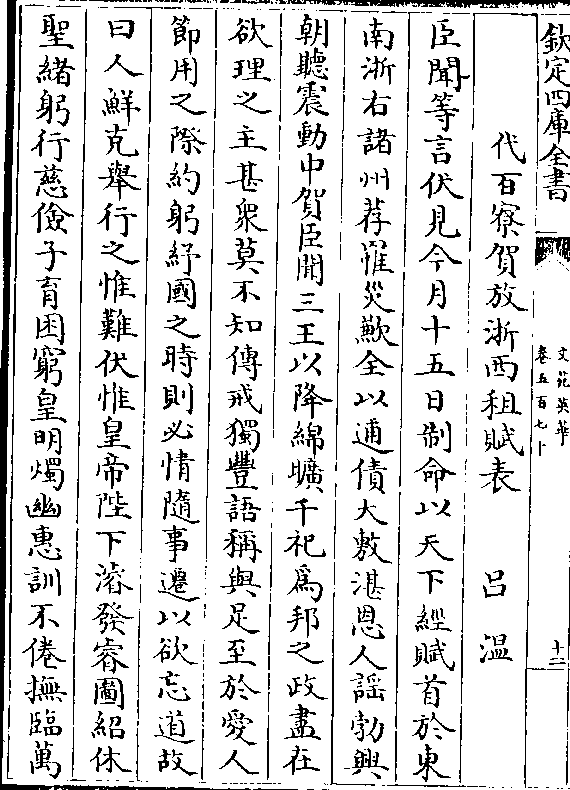 欽定四庫全書
文苑英華
卷五百七十
十二
代百寮賀放浙西租賦表　　呂溫
臣聞等言伏見今月十五日制命以天下經賦首於東
南浙右諸州荐罹災歉全以逋債大敷湛恩人謡勃興
朝聽震動中賀臣聞三王以降綿曠千祀為邦之政盡在
欲理之主甚衆莫不知傳戒獨豐語稱與足至於愛人
節用之際約躬紓國之時則必情隨事遷以欲忘道故
曰人鮮克舉行之惟難伏惟皇帝陛下濬發睿圖紹休
聖緒躬行慈儉子育困窮皇明燭幽惠訓不倦撫臨萬